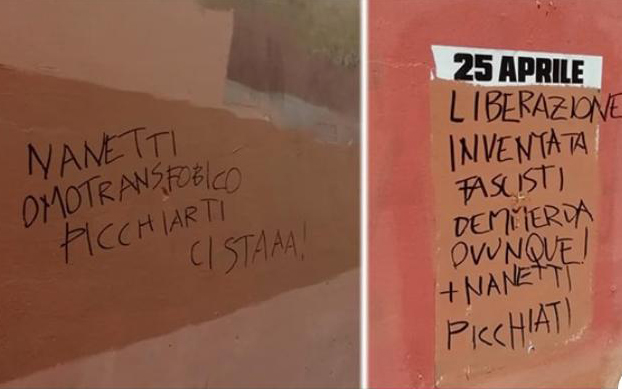 NANETTI
OMOTRANSFOBICO
PICCHIARTI
CI STAAA!
25 APRILE
LIBERAZIONE
INVENTATA
FASCISTI
DEMMERDA
OVUNQUE!
+ NANETTI
PICCHIATI